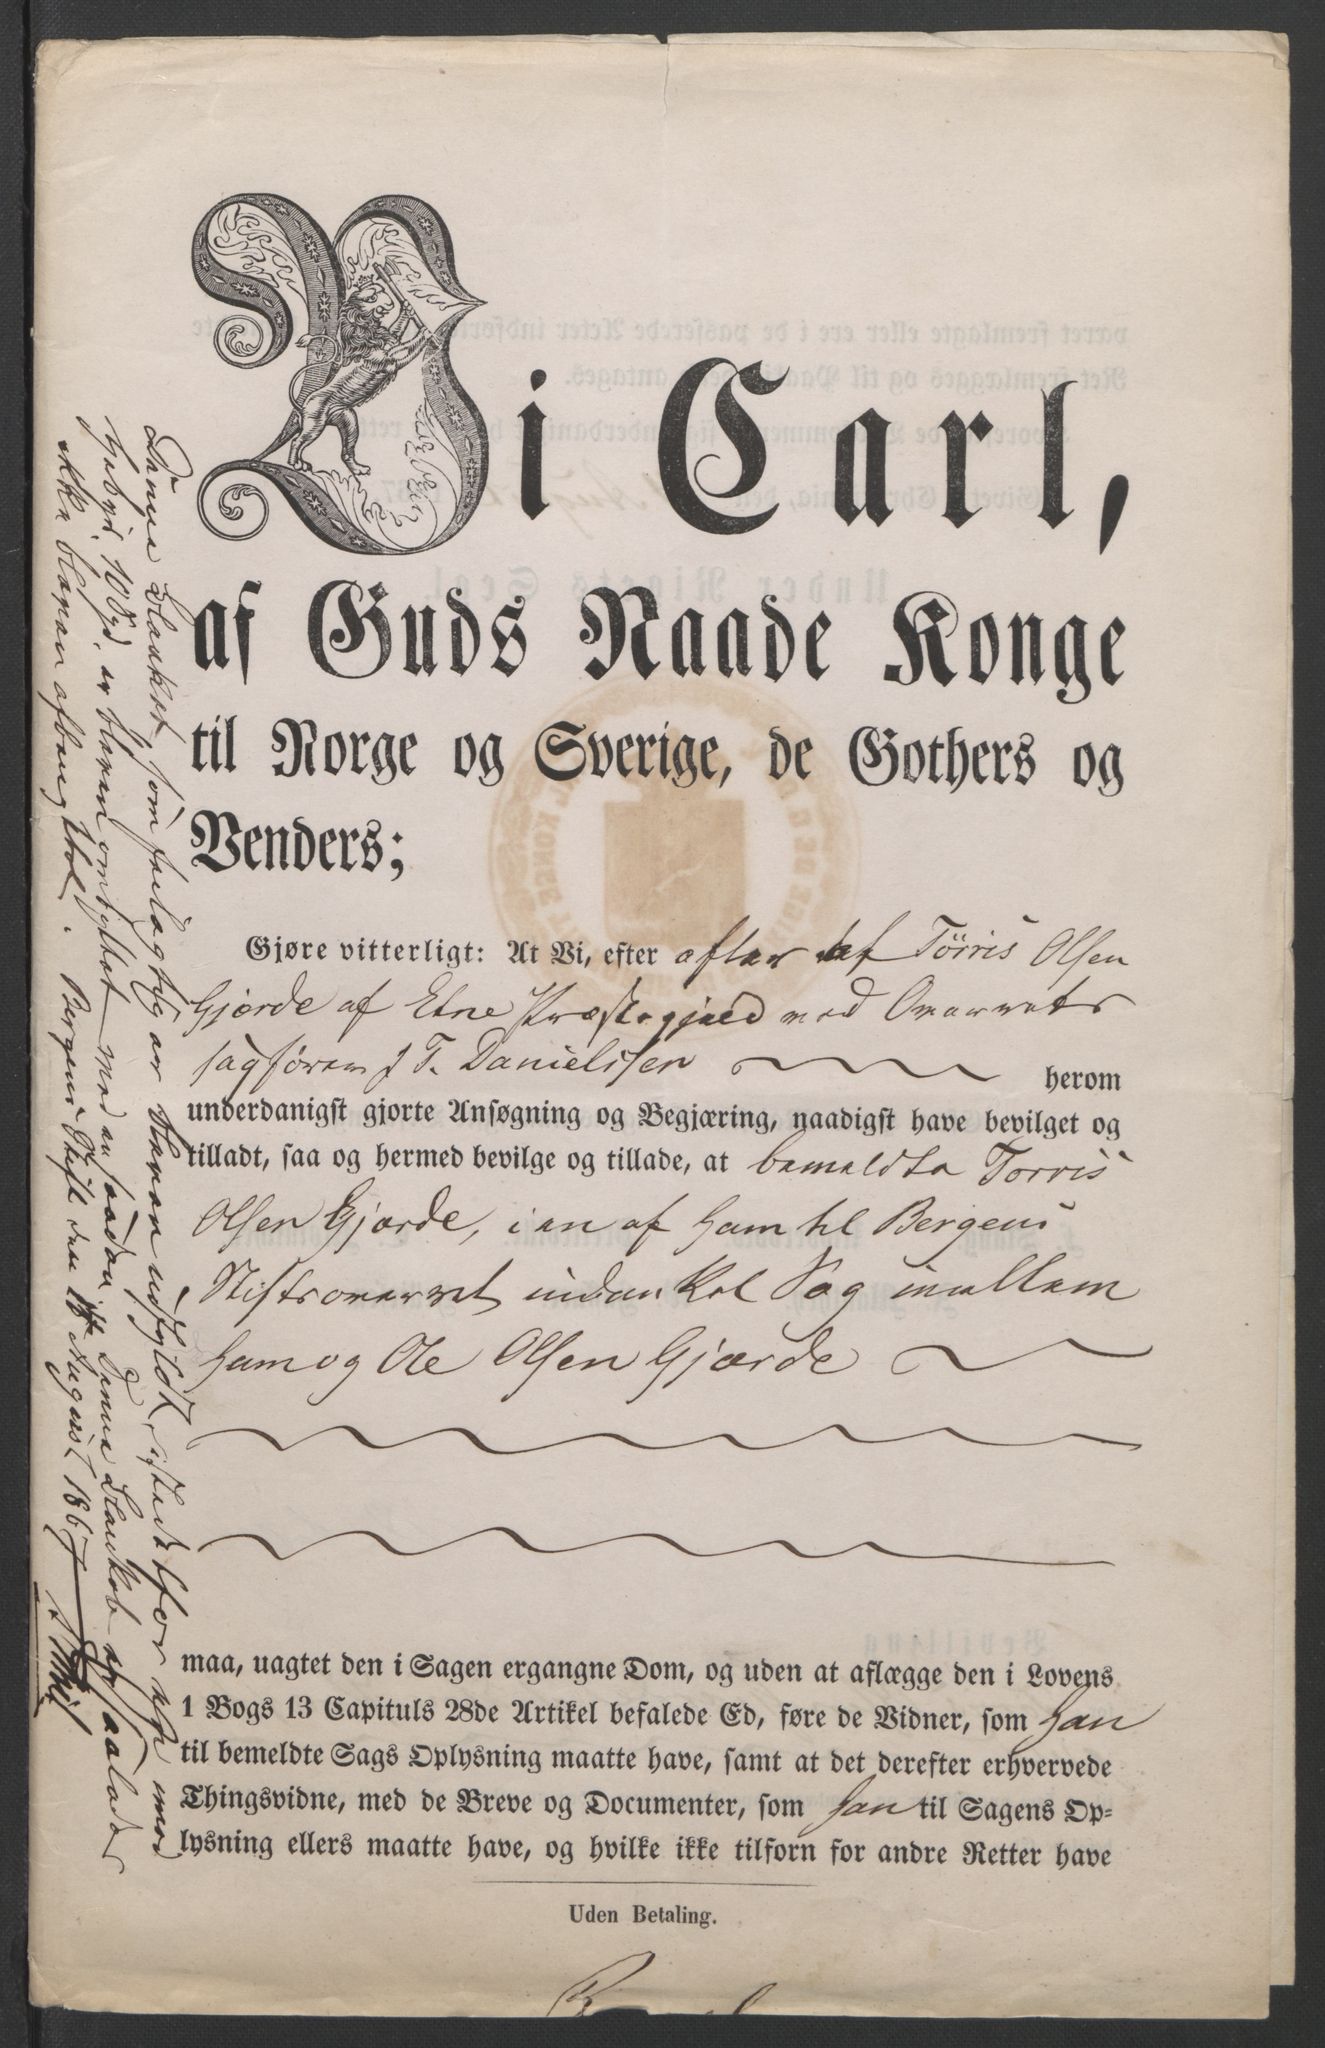 Vi Carl,
af Guds Naade Konge
til Norge og Sverige, de Gothers og
Venders;
Gjøre vitterligt: At Vi, efter af Tørris Olsen
Gjærde af Etne Præstegjæld med Overrets
sagfører J T. Danielssen herom
underdanigst gjorte Ansøgning og Begjæring, naadigst have bevilget og
tilladt, saa og hermed bevilge og tillade, at bemeldte Torris
Olsen Gjærde, i en af ham til Bergens
Stiftsoverret indanket Sag imellem
ham og Ole Olsen Gjærde
maa, uagtet den i Sagen ergangne Dom, og uden at aflægge den i Lovens
1 Bogs 13 Capituls 28de Artikel befalede Ed, føre de Vidner, som han
til bemeldte Sags Oplysning maatte have, samt at det derefter erhvervede
Thingsvidne, med de Breve og Documenter, som han til Sagens Op-
lysning ellers maatte have, og hvilke ikke tilforn for andre Retter have
Uden Betaling.
Denne Blanket, som feilagtig er bleven udfyldt, istedetfor en mod
Gebyr, 108 er bleven ombyttet med en saadan Denne Blanket er saaledes
ikke bleven afbenyttet. Bergens Stift den August 1867